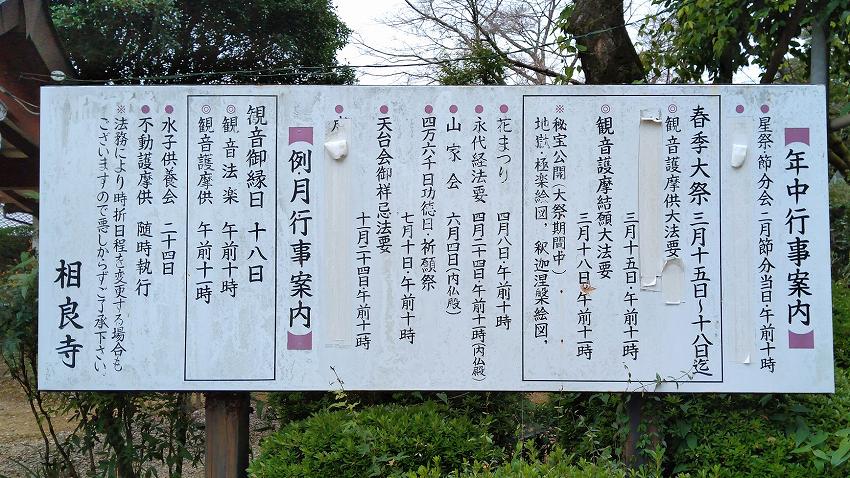 年中行事案内
●星祭・節分会 二月節分当日・午前十時
●
春季大祭 三月十五日～十八日迄
◎観音護摩供大法要
三月十五日・午前十一時
◎観音護摩結願大法要
三月十八日・午前十一時
※秘宝公開(大祭期間中)
地獄・極楽絵図、釈迦涅槃絵図、
●花まつり 四月八日・午前十時
●永代経法要 四月二十四日・午前十一時(内仏殿)
●山家会 六月四日(内仏殿)
●四万六千日功徳日・祈願祭
七月十日・午前十時
●天台会御祥忌法要
十一月二十四日・午前十一時
●
例月行事案内
観音御縁日 十八日
◎観音法楽 午前十時
◎観音護摩供 午前十一時
●水子供養会 二十四日
●不動護摩供 随時執行
※法務により時折日程を変更する場合も
ございますので悪しからずご了承下さい。
相良寺